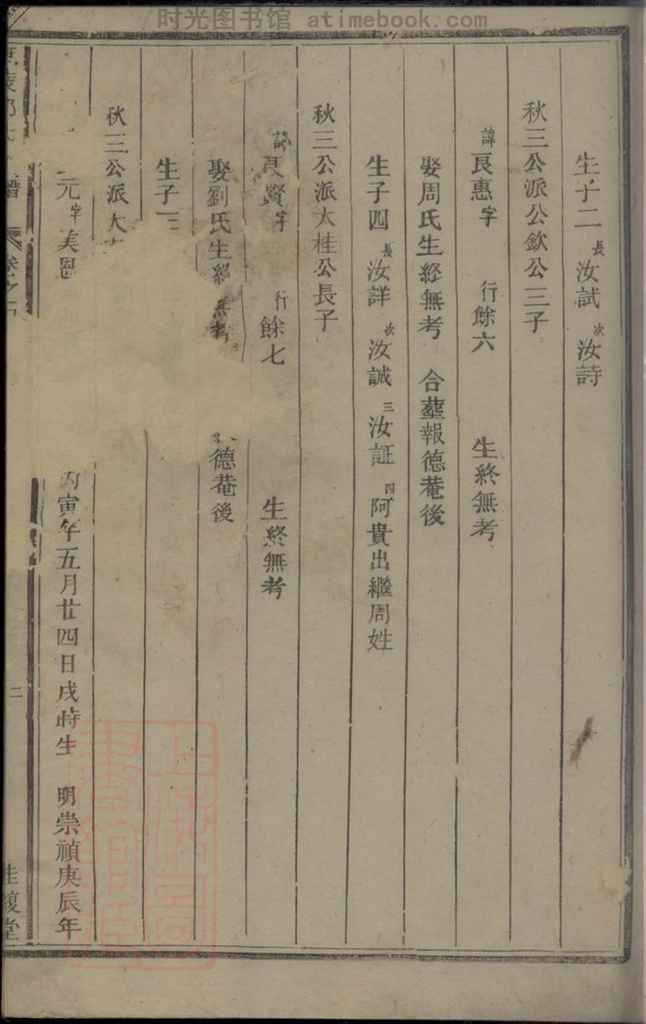 时光图书馆 atimebook.com
生子二 長 汝試 次 汝詩
秋三公派公欽公三子
諱良惠字 行餘六 生終無考
娶周氏生終無考 合塟報德菴後
生子四 長 汝詳 次 汝誠 三 汝証 四 阿貴出繼周姓
秋三公派大桂公長子
諱良賢字 行餘七 生終無考
娶劉氏生終無考 德菴後
生子
秋三公派大
元字美恩 丙寅年五月廿四日戌時生 明崇禎庚辰年
譜 卷之 二